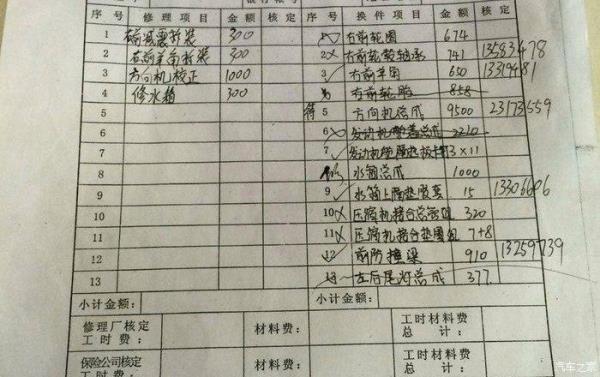 序号 修理项目 金额 核定 序号 换件项目 金额 核定
1 右前减震拆装 300 右前轮圈 674
2 右前羊角拆装 300 2 右前轮毂轴承 741 13583478
3 方向机校正 1000 3 右前羊角 650
4 修水箱 300 右前轮胎 858
5 待 5 方向机总成 9500 23173559
6 6 发动机 总成 2210
7 7 发动机 3×11
8 水箱总成 1000
9 9 水箱上 垫胶套 15 13306606
10 10 压缩机接合总 320
11 11 压缩机接合垫圈 7+8
12 12 前防撞梁 910 13259739
13 13 左后尾灯总成 377
小计金额: 小计金额:
修理厂核定 工时费: 材料费: 工时材料费 总计:
保险公司核定 工时费: 材料费: 工时材料费 总计:
汽车之家